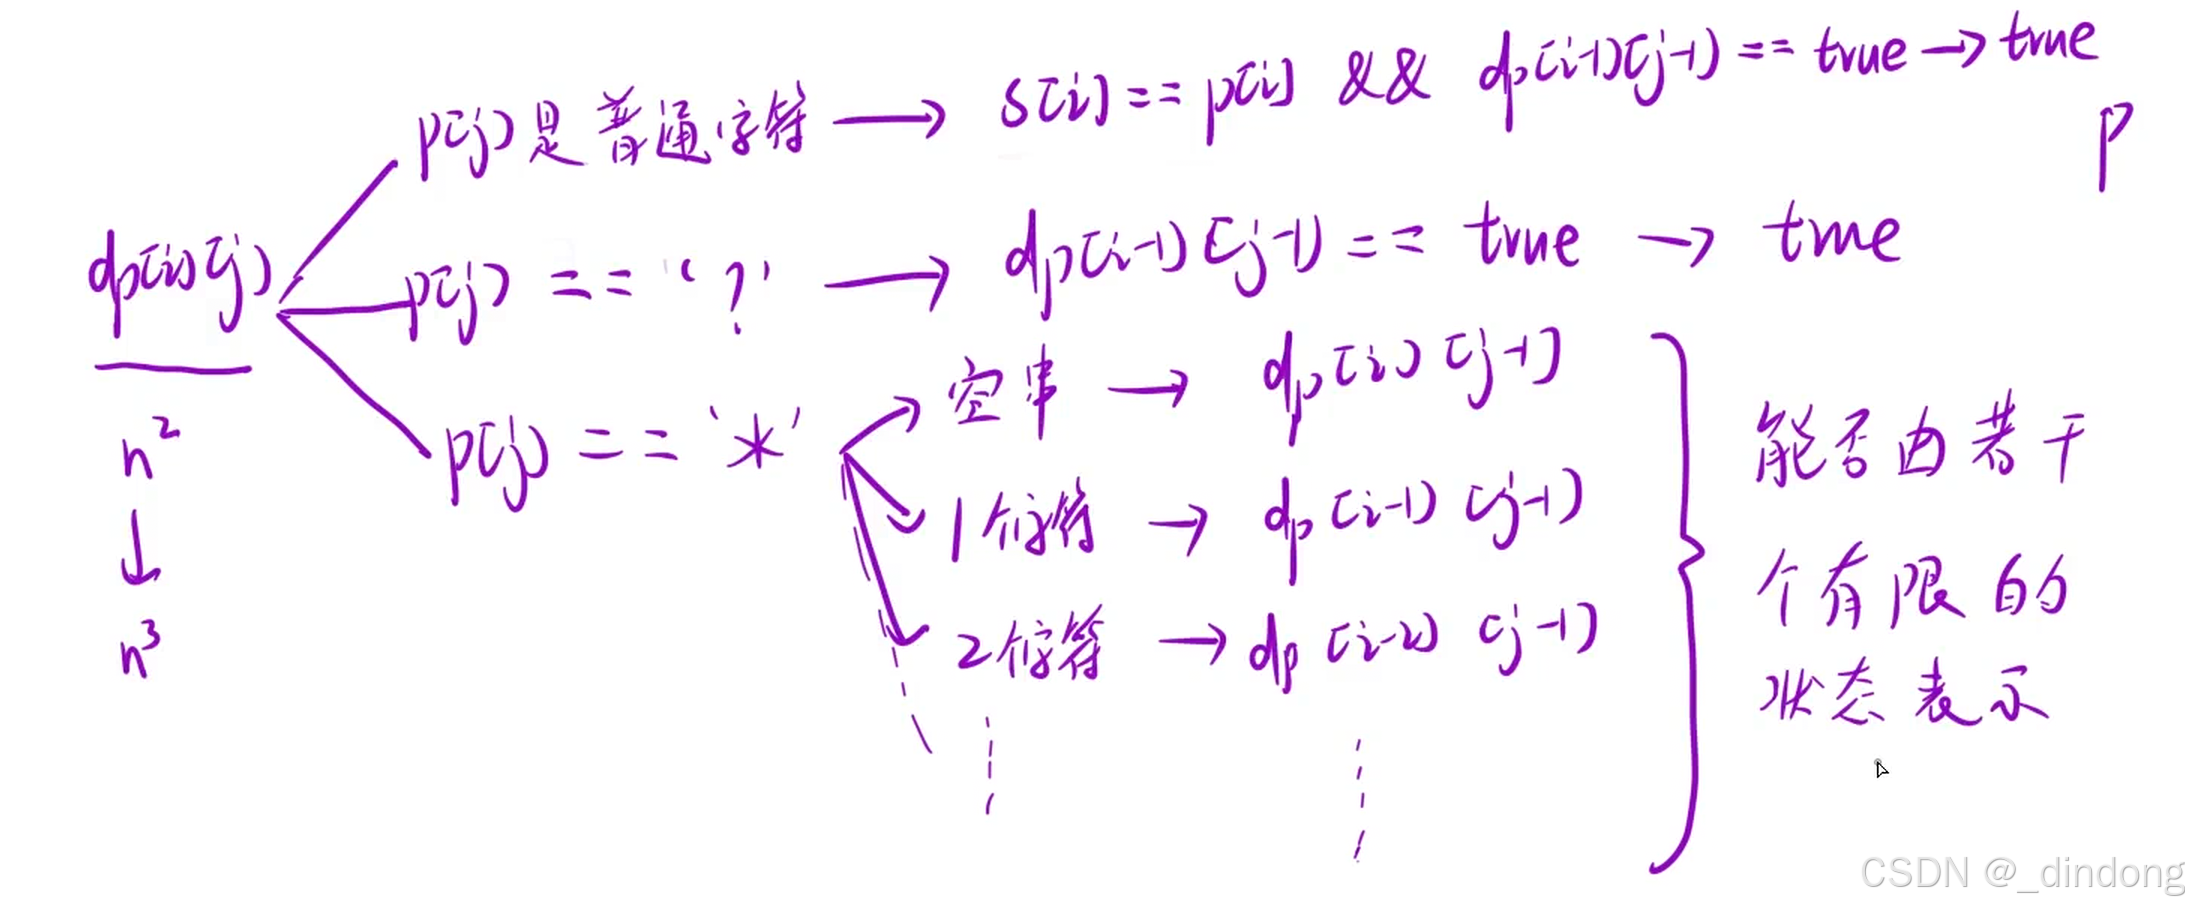 p[j]是普通字符 → s[i]==p[i] && dp[i-1][j-1]==true→true
p
dp[i][j]
p[j]=='?' → dp[i-1][j-1]==true → true
n²
↓
n³
p[j]=='*'
空串 → dp[i][j-1]
1个字符 → dp[i-1][j-1]
2个字符 → dp[i-2][j-1]
能否由若干
个有限的
状态表示
CSDN @_dindong